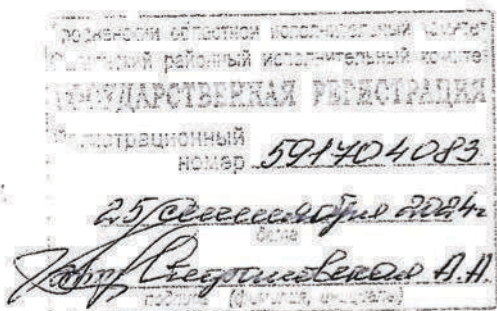 Гродненский областной исполнительный комитет
районный исполнительный комитет
ГОСУДАРСТВЕННАЯ РЕГИСТРАЦИЯ
Регистрационный
номер 591704083
25 сентября 2024г
дата
А.А.
подпись (фамилия, инициалы)